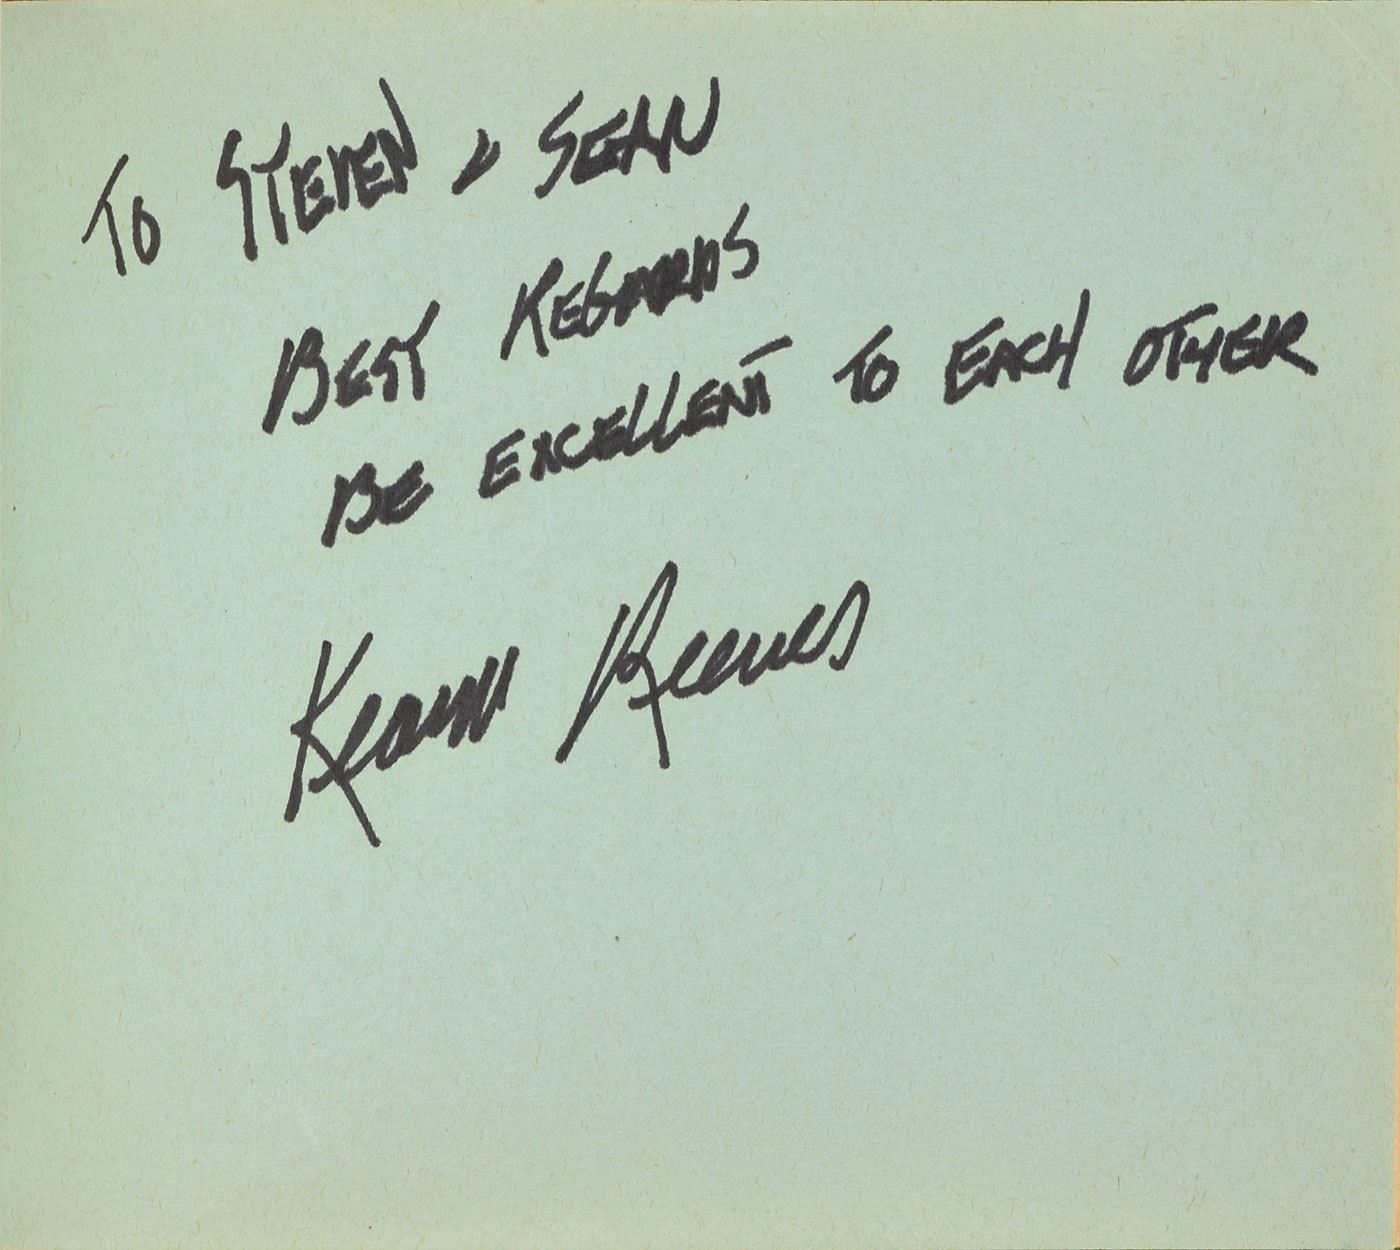 To STEVEN & SEAN
BEST REGARDS
BE EXCELLENT TO EACH OTHER
Keanu Reeves